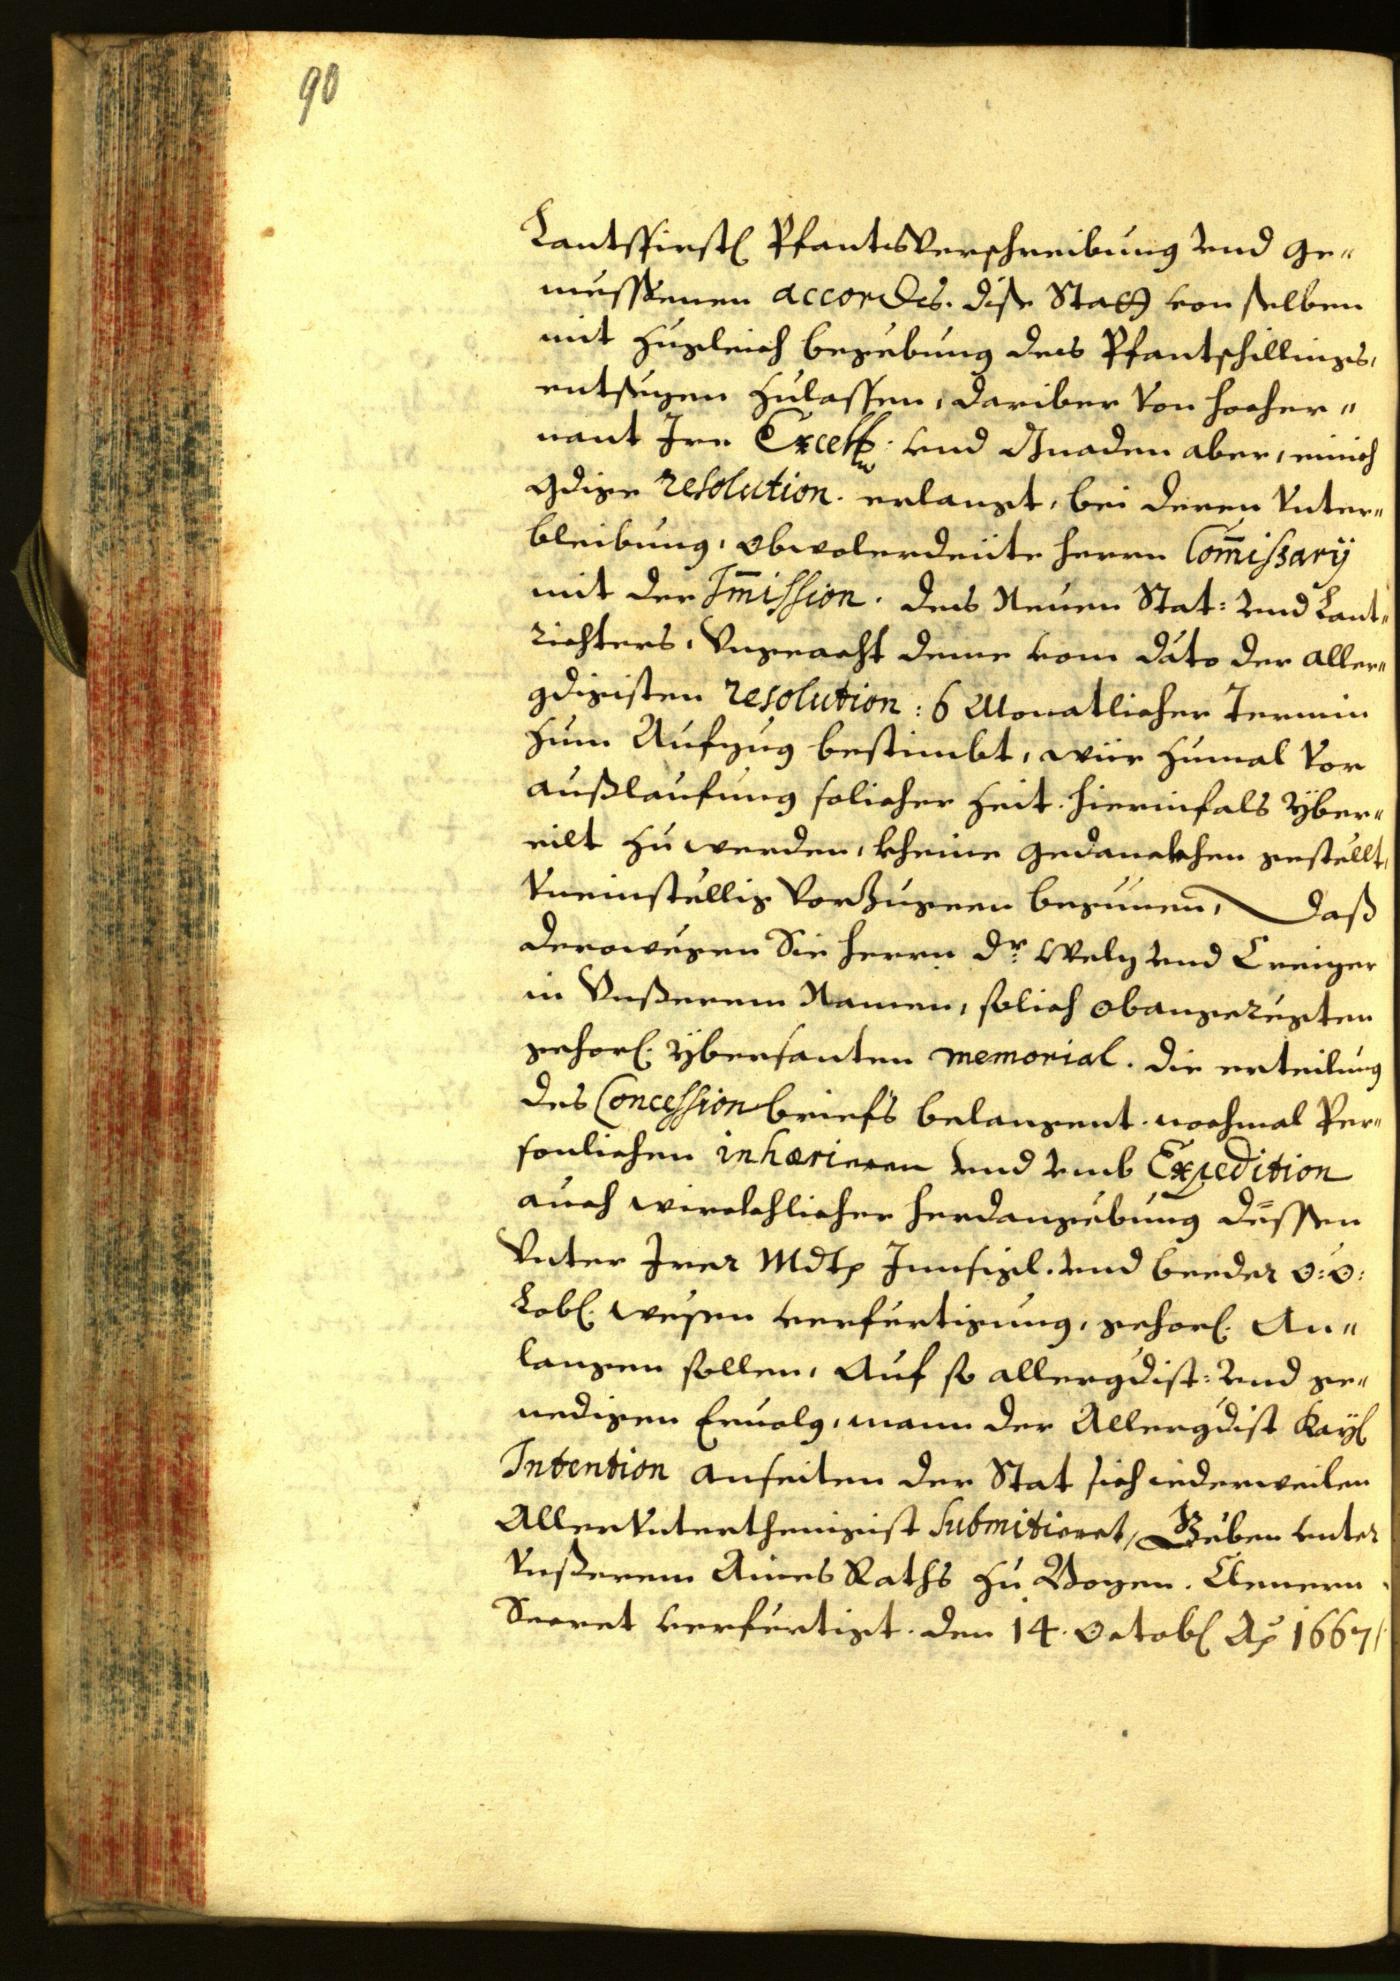 90
Lantsfirstl Pfantsverschreibung vnd ge-
messenen accordes. dise Statt von selben
mit zugleich begebung des Pfantschillings,
entsezen zulassen, dariber von hocher-
nant Irn Excell: vnd Gnaden aber, einich
gdige resolution. erlangt, bei deren vnter-
bleibung, obwolerdeüte herrn Commissarÿ
mit der Immission. des Neuen Stat: vnd Lant-
richters, Vngeacht deme vom dato der aller-
gdigisten resolution: 6 Monatlicher Termin
zum Aufzug bestimbt, wür zumal vor
außlaufung solicher Zeit. hierinfals yber-
eilt zu werden, kheine gedanckhen gestellt,
Vneinstellig vorzugeen begünen, Daß
derowegen Sie herrn dr. Welz vnd Creizer
in Vnßerem Namen, solich obangeregten
gehorl. ybersanten memorial. die erteilung
des Concession briefs belangent. nochmal Per-
sonlichen inhærieren vnd vmb Expedition
auch wircklicher herdangebung dessen
Vnter Irer Mdt Innsigl. vnd beeder o: ö:
Lobl. wesen verfertigung, gehorl. An-
langen sollen, Auf so allergdist: vnd ge-
nedigen Ervolg, wann der Allergdist Kayl
Intention anseiten der Stat sich iederweilen
Allervnterthenigist submitieret, Geben vnter
vnßerem Aines Raths zu Bozen. Clenern
Secret verfertigt. den 14. Octobl Ao 1667